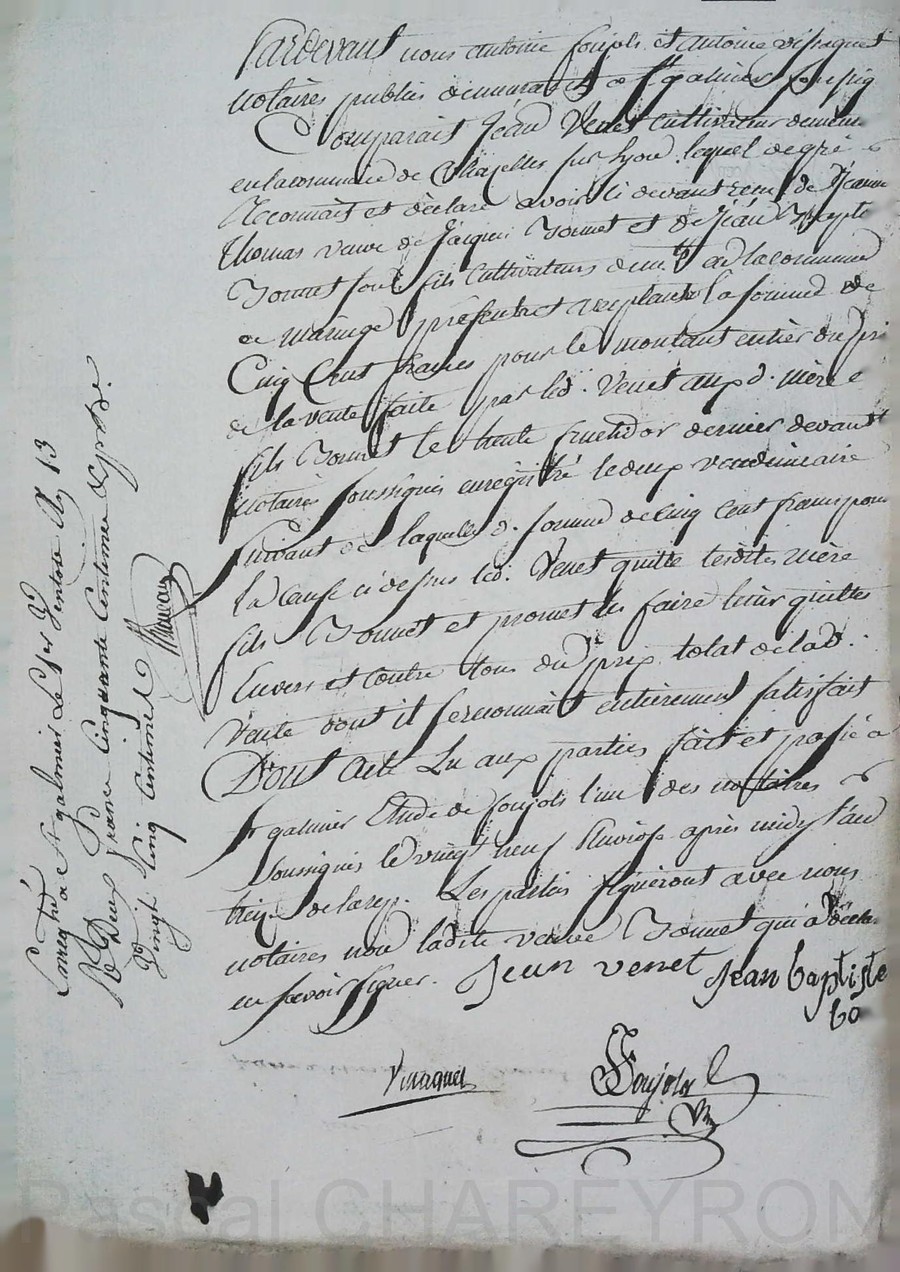 Pardevant nous antoine foujols et antoine
notaires publics à St galmier
Comparait Jean Venet Cultivateur
en la commune de Chazelles sur Lyon lequel de gré
Reconnait et déclare avoir ci devant reçu de Jeanne
thomas veuve de Jacques Bonnet et de Jean
Bonnet son fils Cultivateurs dem.ts a la commune
de maringe présents et la somme de
Cinq Cent francs pour le montant entier du pri
de la vente faite par led. Venet aux d. mère e
fils Bonnet le trente fructidor dernier devant
notaires soussignés enregistré le deux vendemiaire
Suivant de laquelle d. somme de cinq cent francs pour
la Cause ci dessus led. Venet quitte lesdits mère
fils Bonnet et promet les faire tenir quittes
Envers et contre tous du prix total de lad.
Vente dont il se reconnait entierement satisfait
Dont acte Lu aux parties fait et passé a
St galmier Etude de foujols l'un des notaires
Soussignés le vingt neuf pluviose après midy l'an
treize de la rep. Les parties signeront avec nous
notaires non ladite veuve Bonnet qui a
savoir signer. Jean venet Jean baptiste
bo
foujols
Enreg.tré a St galmier Le 1er Ventose An 13
R. Deux francs Cinquante Centimes &
Vingt Cinq Centimes
Pascal CHAREYRON